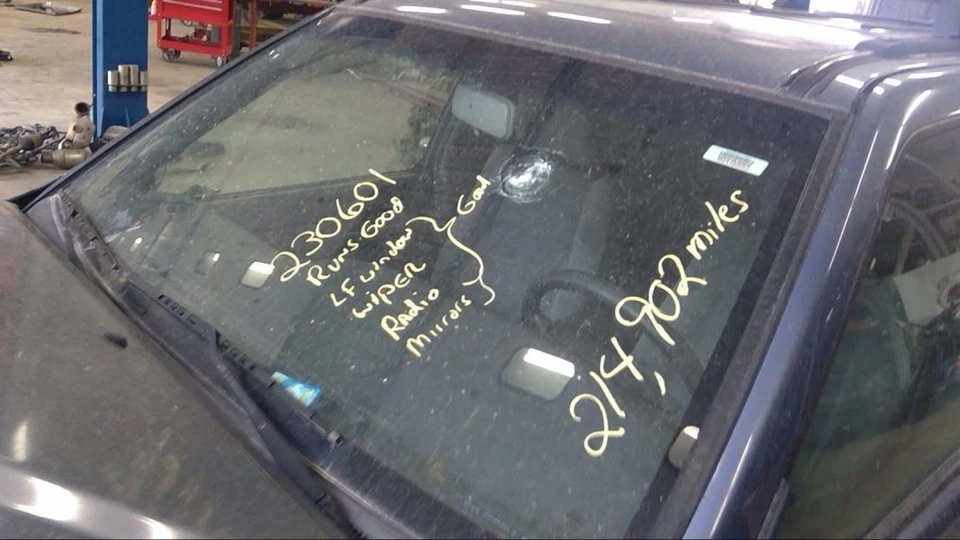 230601
RUNS GOOD
LF window
wipER
RAdio
Mirrors
Good
214,902 miles